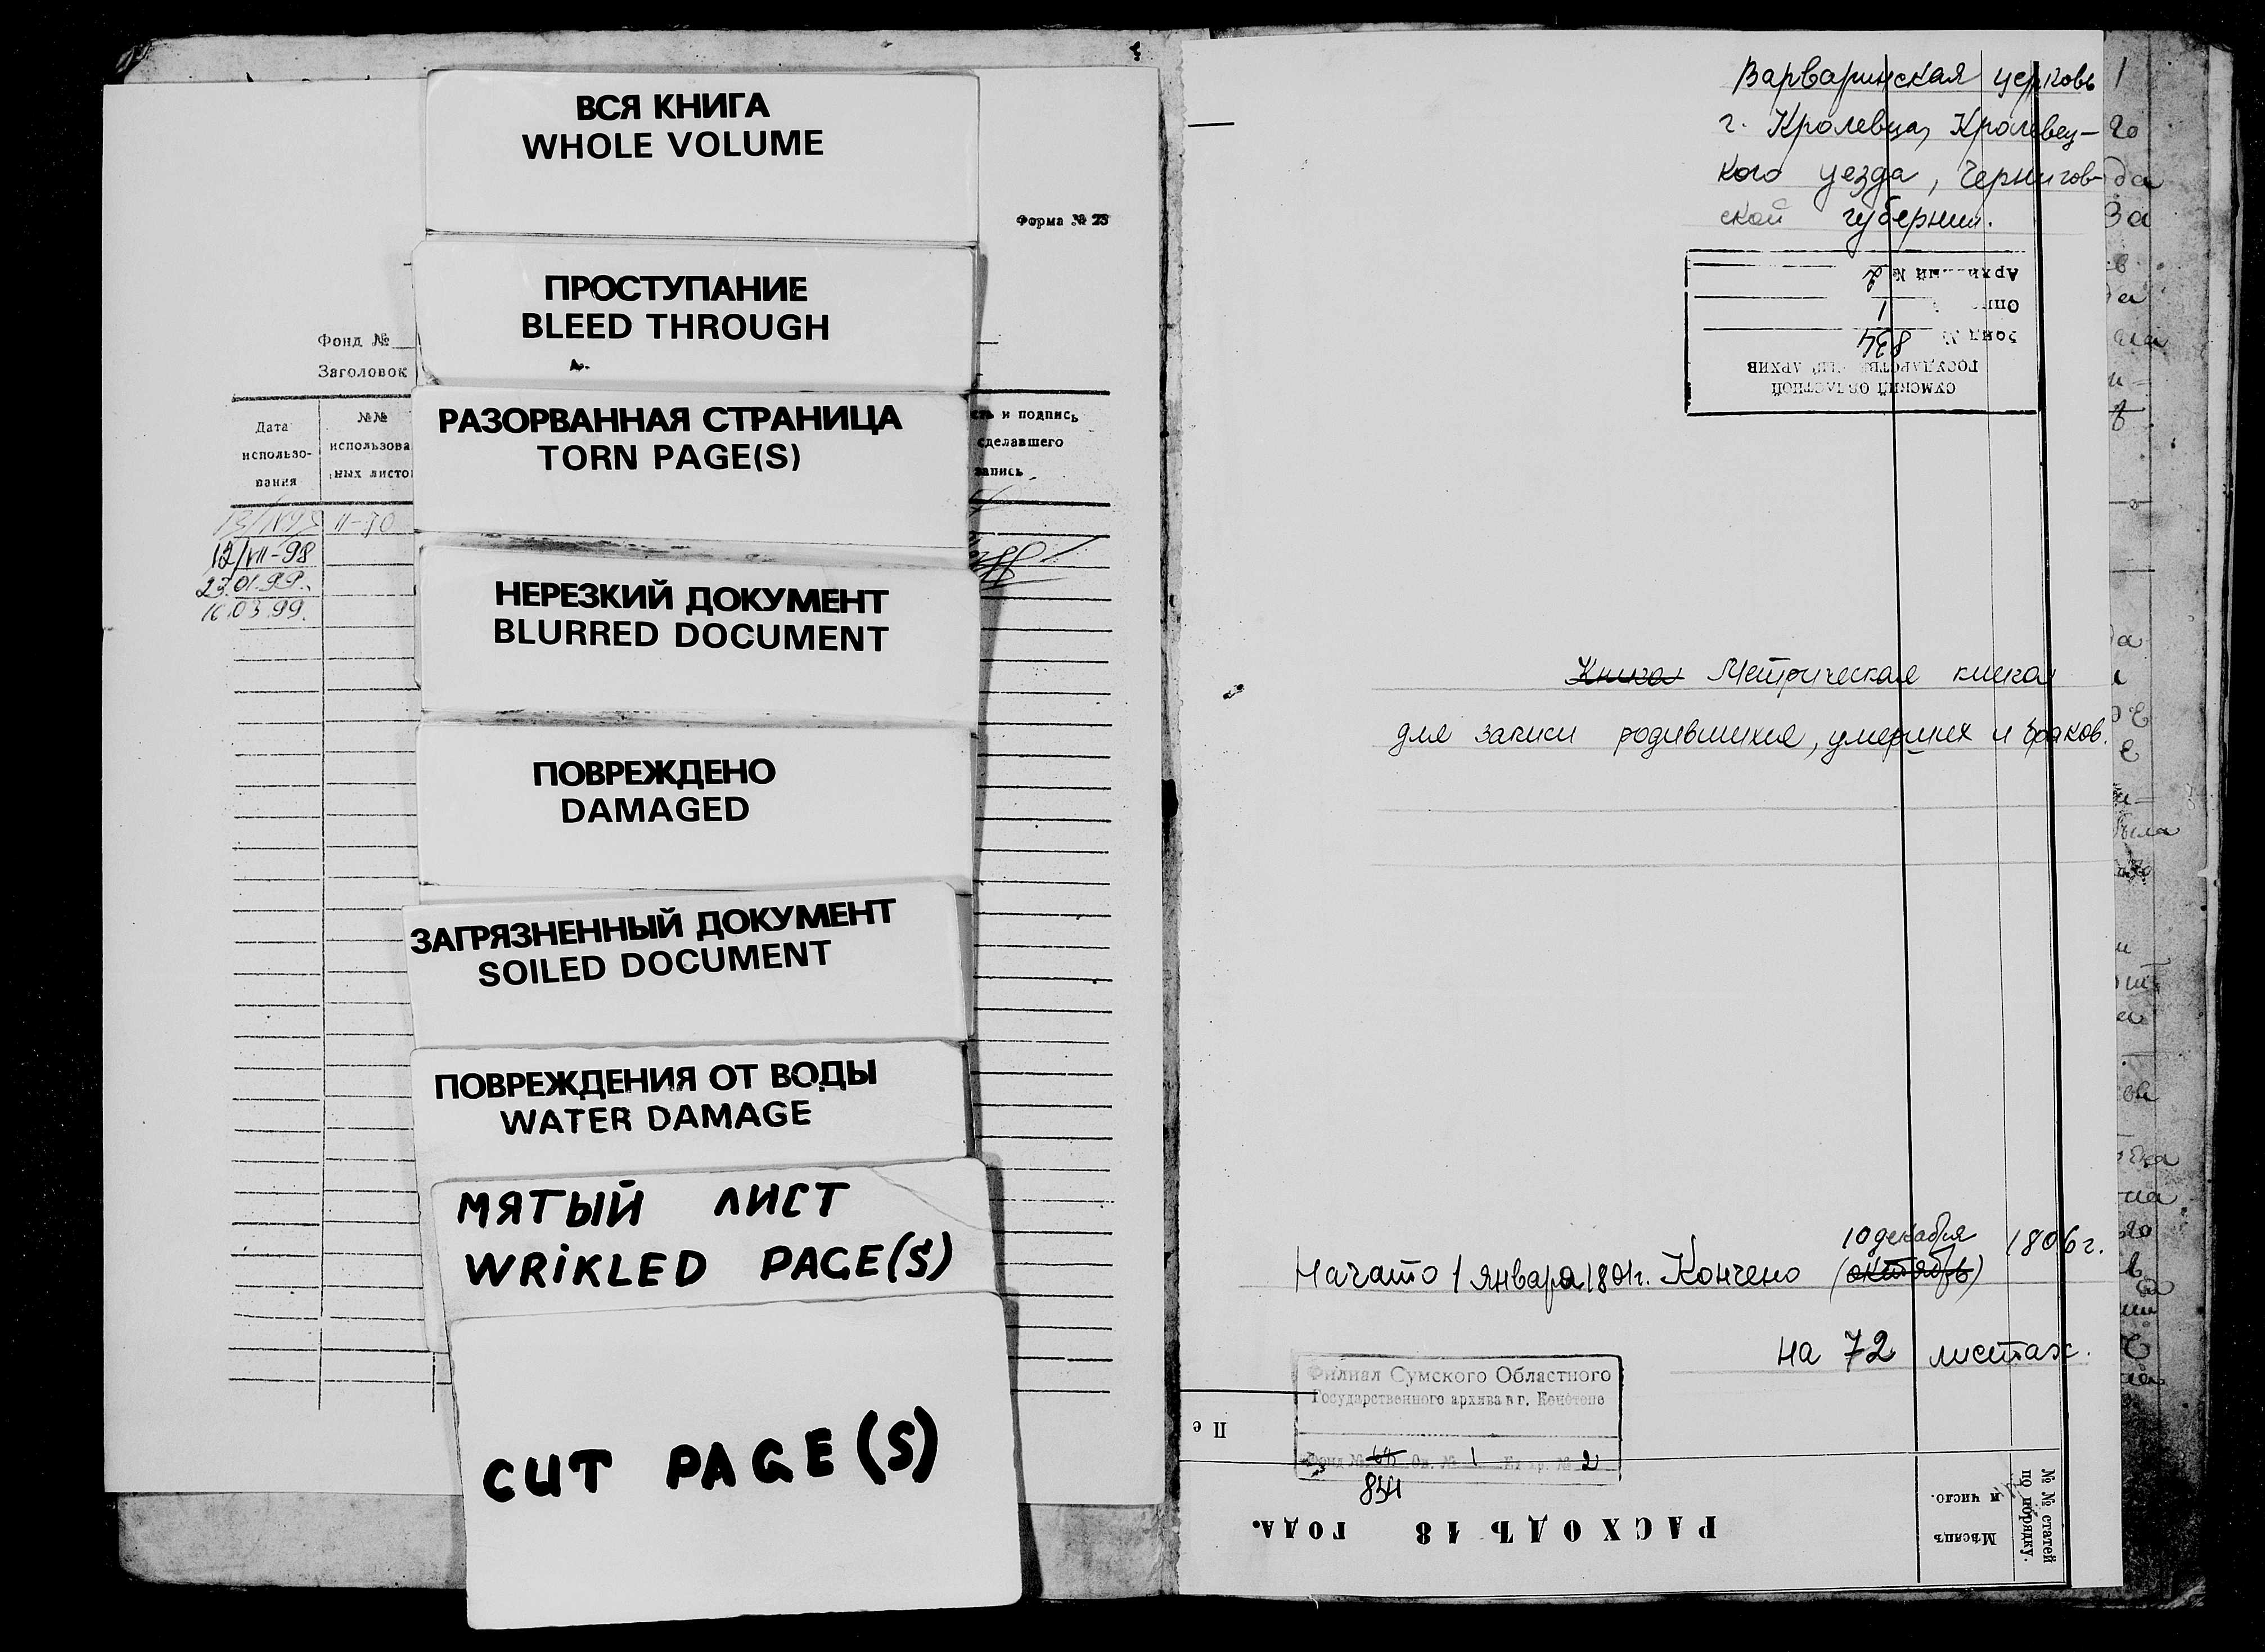 ВСЯ КНИГА
WHOLE VOLUME
ПРОСТУПАНИЕ
BLEED THROUGH
РАЗОРВАННАЯ СТРАНИЦА
TORN PAGE(S)
НЕРЕЗКИЙ ДОКУМЕНТ
BLURRED DOCUMENT
ПОВРЕЖДЕНО
DAMAGED
ЗАГРЯЗНЕННЫЙ ДОКУМЕНТ
SOILED DOCUMENT
ПОВРЕЖДЕНИЯ ОТ ВОДЫ
WATER DAMAGE
МЯТЫЙ ЛИСТ
WRIKLED PAGE(S)
CUT PAGE(S)
Форма № 23
Фонд №
Заголовок
Дата
использо-
вания
№№
использова
ных листо
и подпись
сделавшего
запись
12/VII-98
23.01.99.
10.03.99.
Варваринская церковь
г. Кролевца, Кролевец-
кого уезда, Чернигов-
ской губернии.
СУМСКИЙ ОБЛАСТНОЙ
ГОСУДАРСТВЕННЫЙ АРХИВ
Фонд № 834
Опись 1
Архивный № 2
Книга Метрическая книга
для записи родившихся, умерших и браков.
10 декабря 1806 г.
Начато 1 января 1801г. Кончено (октябрь)
на 72 листах.
Филиал Сумского Областного
Государственного архива в г. Конотопе
Фонд № Оп. № 1 Ед. хр. № 2
834
РАСХОДЪ 18 ГОДА.
Мѣсяцъ
и число.
№ № статей
по порядку.